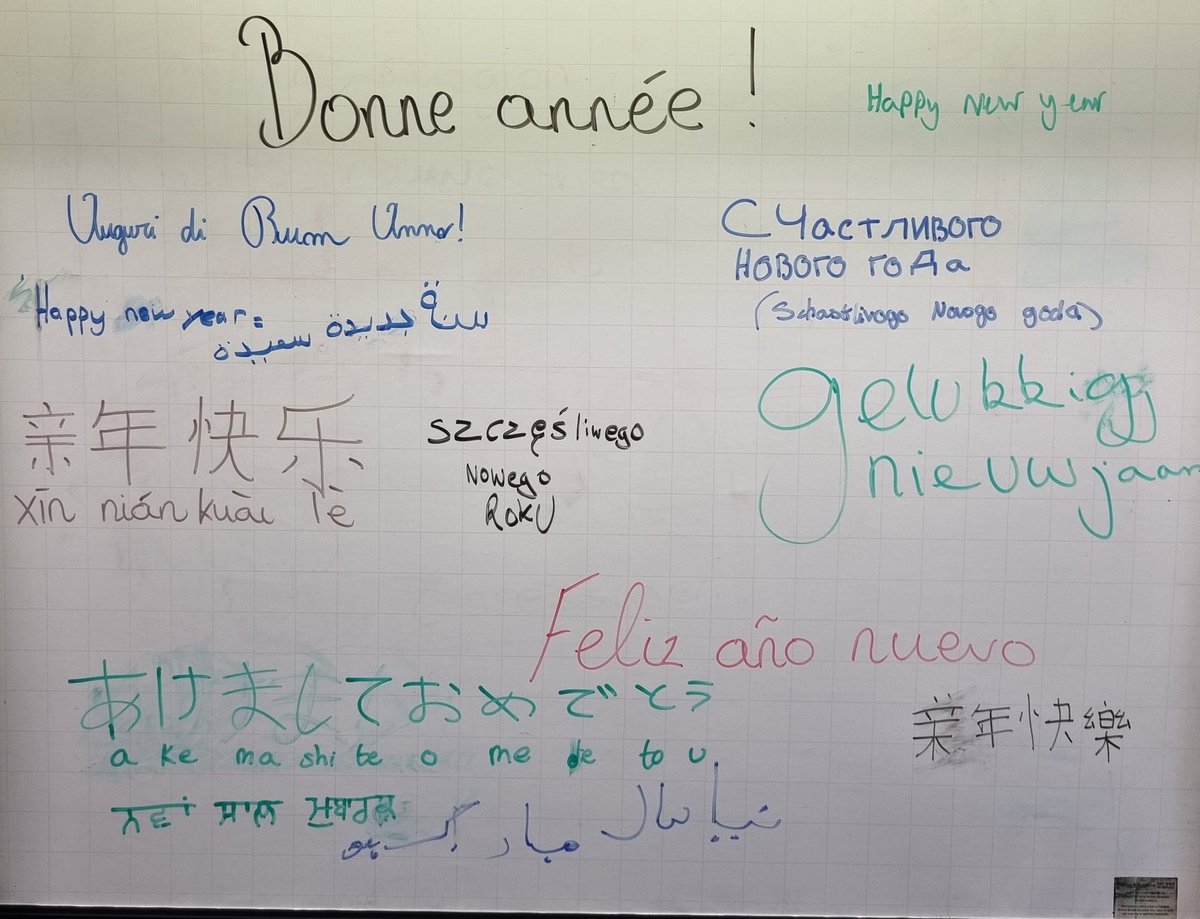 Bonne année !
Happy New year
Auguri di Buon Anno!
С Счастливого
нового года
(Schastlivogo Novogo goda)
Happy new year:
سنة جديدة سعيدة
亲年快乐
xīn nián kuài lè
szczęśliwego
Nowego
Roku
gelukkig
nieuwjaar
Feliz año nuevo
あけましておめでとう
a ke ma shi te o me de to u
亲年快樂
ਨਵਾਂ ਸਾਲ ਮੁਬਾਰਕ
نیا سال مبارک ہو